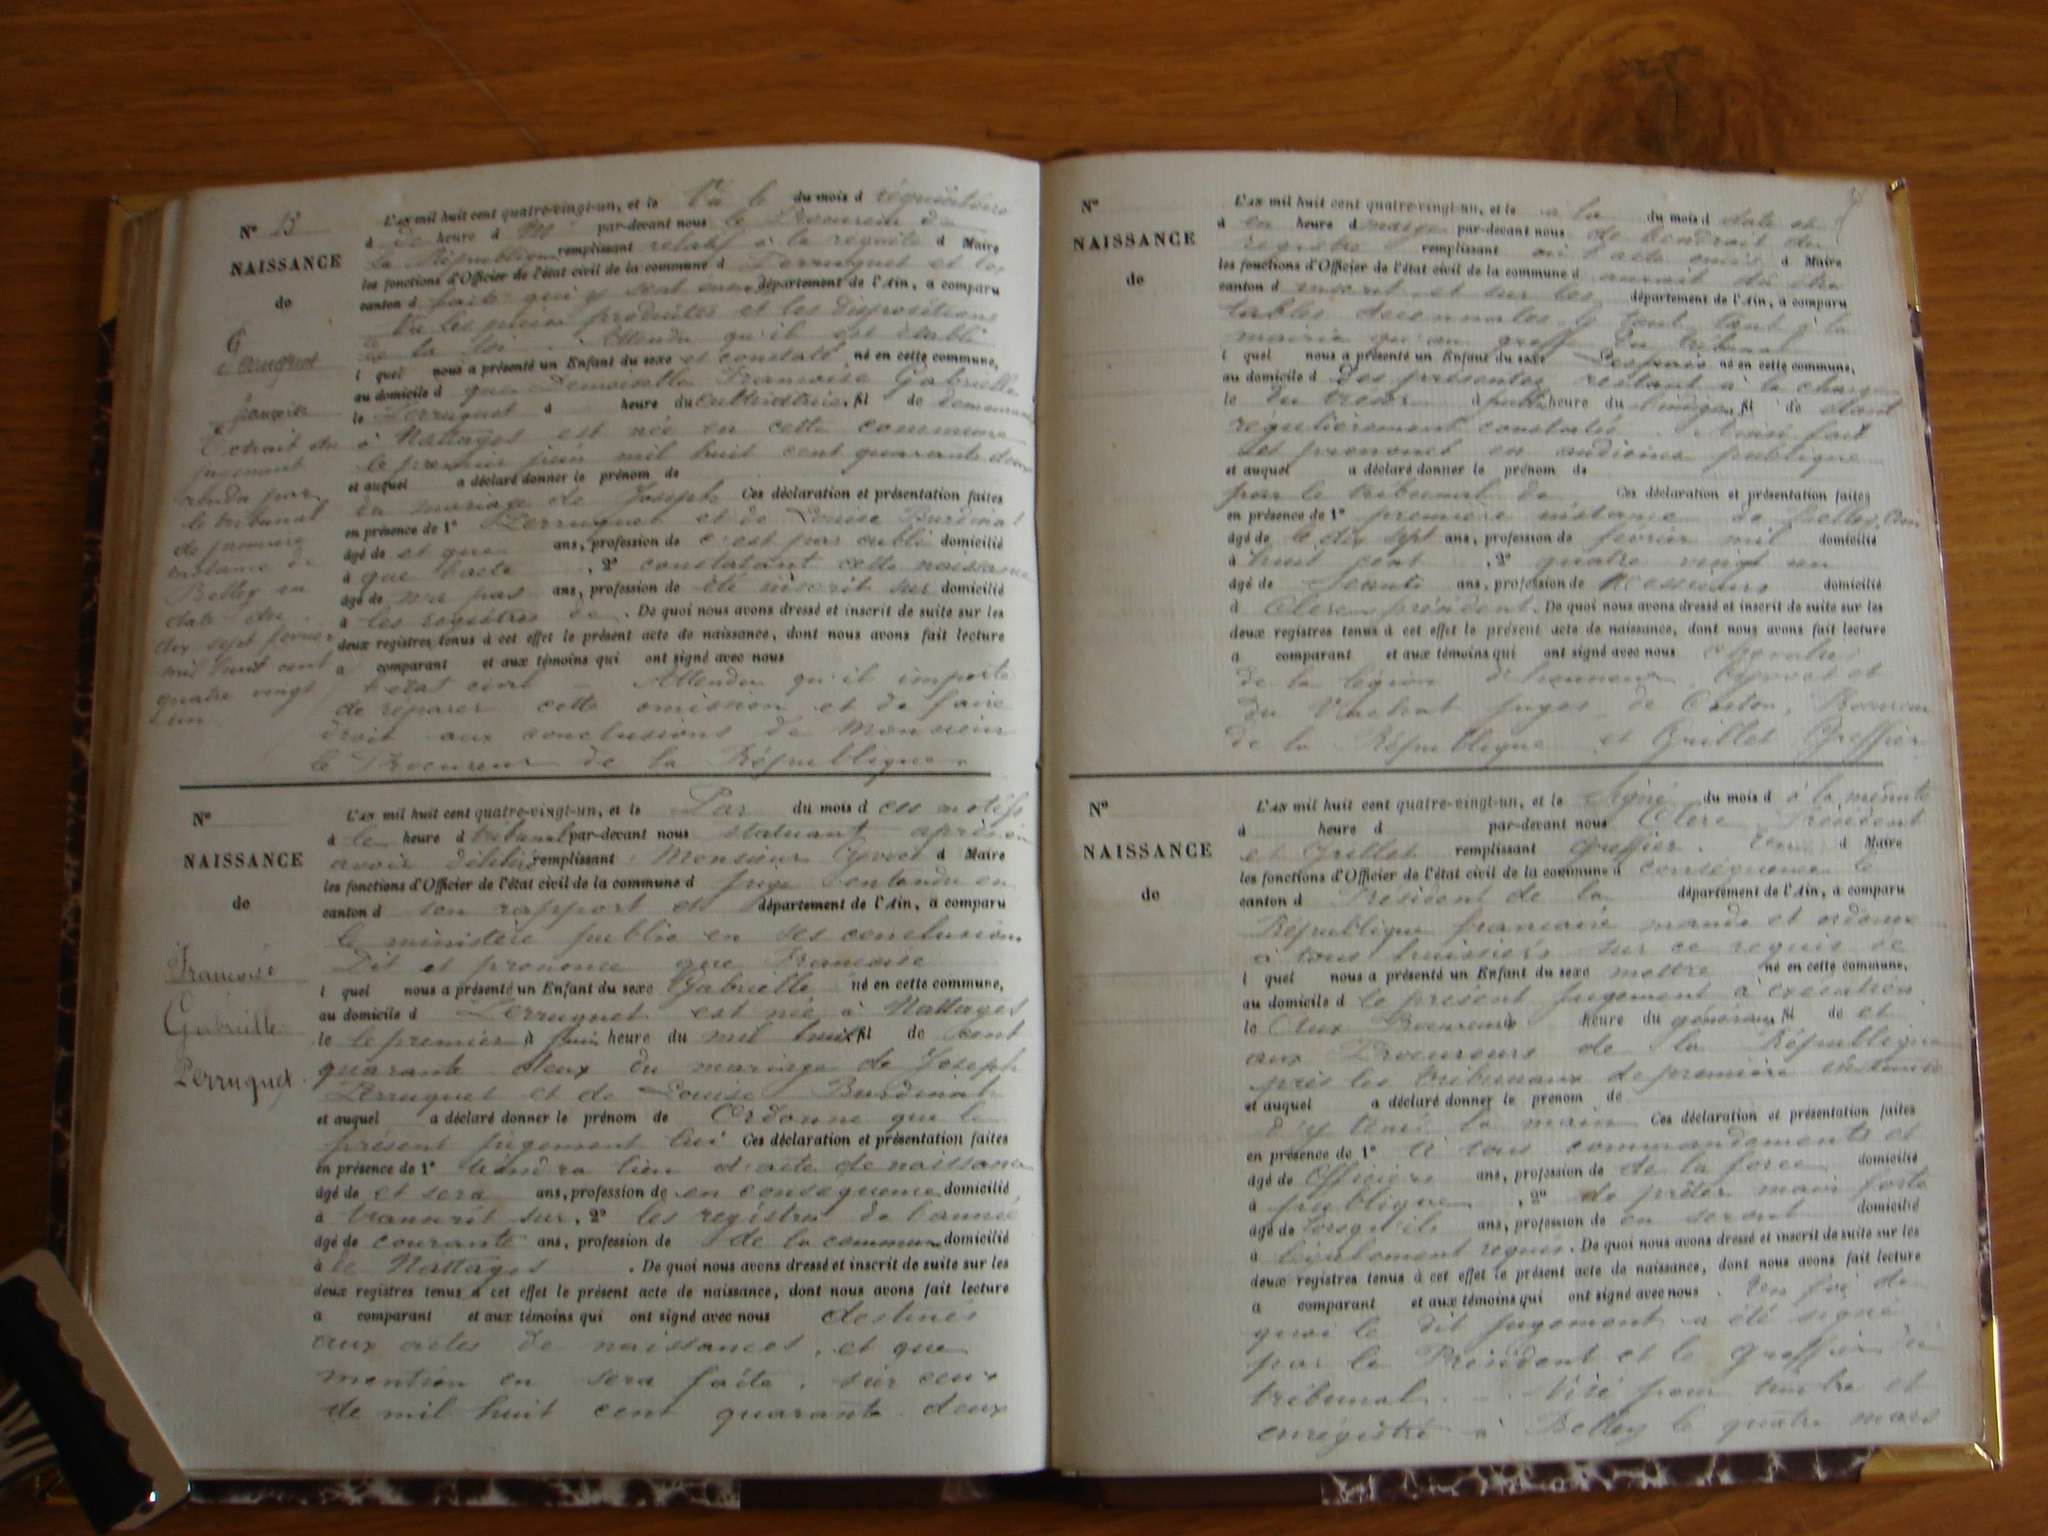 N° 13
NAISSANCE
de
Perruquet
Extrait du
jugement
rendu par
le tribunal
de première
instance de
Belley en
date du
dix sept fevrier
mil huit cent
quatre vingt
un
L'an mil huit cent quatre-vingt-un, et le Vu le du mois d réquisitoire
à de heure d M par-devant nous le Procureur de
la République remplissant relatif à la requête d Maire
les fonctions d'Officier de l'état civil de la commune d Perruquet et les
canton d faits qui y sont département de l'Ain, a comparu
Vu les pièces produites et les dispositions
de la loi. Attendu qu'il est établi
l quel nous a présenté un Enfant du sexe et constaté né en cette commune,
au domicile d que Demoiselle Francoise Gabrielle
le Perruquet à heure du cultivatrice, fil de demeurant
à Nattages est née en cette commune
le premier juin mil huit cent quarante deux
et auquel a déclaré donner le prénom de
du mariage de Joseph Ces déclaration et présentation faites
en présence de 1° Perruquet et de Louise Burdinat
âgé de et que ans, profession de c'est par oubli domicilié
à que l'acte , 2° constatant cette naissance
âgé de n'a pas ans, profession de été inscrit sur domicilié
à les registres de . De quoi nous avons dressé et inscrit de suite sur les
deux registres tenus à cet effet le présent acte de naissance, dont nous avons fait lecture
a comparant et aux témoins qui ont signé avec nous
l'etat civil — Attendu qu'il importe
de réparer cette omission et de faire
droit aux conclusions de Monsieur
le Procureur de la République.
N°
NAISSANCE
de
Francoise
Gabrielle
Perruquet
L'an mil huit cent quatre-vingt-un, et le Par du mois d ces motifs
à le heure d tribunal par-devant nous statuant après en
avoir délibéré remplissant Monsieur d Maire
les fonctions d'Officier de l'état civil de la commune d juge entendu en
canton d son rapport et département de l'Ain, a comparu
le ministère public en ses conclusions
Dit et prononce que Francoise
l quel nous a présenté un Enfant du sexe Gabrielle né en cette commune,
au domicile d Perruquet est née à Nattages
le le premier à juin heure du mil huit fil de cent
quarante deux du mariage de Joseph
Perruquet et de Louise Burdinat
et auquel a déclaré donner le prénom de Ordonne que le
présent jugement lui Ces déclaration et présentation faites
en présence de 1° tiendra lieu d'acte de naissance
âgé de et sera ans, profession de en consequence domicilié
à transcrit sur , 2° les registres de l'année
âgé de courante ans, profession de de la commune domicilié
à de Nattages . De quoi nous avons dressé et inscrit de suite sur les
deux registres tenus à cet effet le présent acte de naissance, dont nous avons fait lecture
a comparant et aux témoins qui ont signé avec nous destinés
aux actes de naissances, et que
mention en sera faite, sur ceux
de mil huit cent quarante deux
N°
NAISSANCE
de
L'an mil huit cent quatre-vingt-un, et le à la du mois d date et
à en heure d marge par-devant nous de l'endroit du
registre remplissant où l'acte omis d Maire
les fonctions d'Officier de l'état civil de la commune d aurait dû être
canton d inscrit et sur les département de l'Ain, a comparu
tables decennales le tout tant à la
mairie qu'au greffe du tribunal
l quel nous a présenté un Enfant du sexe né en cette commune,
au domicile d Des présentes restant à la charge
le Du trésor à heure du l'indigence fil de étant
régulièrement constatée. Ainsi fait
et prononcé en audience publique
et auquel a déclaré donner le prénom de
par le tribunal de Ces déclaration et présentation faites
en présence de 1° première instance de Belley, Ain
âgé de le dix sept ans, profession de fevrier mil domicilié
à huit cent , 2° quatre vingt un
âgé de Seants ans, profession de Messieurs domicilié
à Clerc président. De quoi nous avons dressé et inscrit de suite sur les
deux registres tenus à cet effet le présent acte de naissance, dont nous avons fait lecture
a comparant et aux témoins qui ont signé avec nous chevalier
de la légion d'honneur, et
du Vachat juges, de Procureur
de la République et Grillet Greffier
N°
NAISSANCE
de
L'an mil huit cent quatre-vingt-un, et le Signé du mois d à la minute
à heure d par-devant nous Clerc Président
et Grillet remplissant Greffier. En d Maire
les fonctions d'Officier de l'état civil de la commune d conséquence le
canton d Président de la département de l'Ain, a comparu
République francaise mande et ordonne
à tous huissiers sur ce requis de
l quel nous a présenté un Enfant du sexe mettre né en cette commune,
au domicile d le présent jugement à execution
le Aux Procureurs heure du généraux fil de et
aux Procureurs de la République
près les tribunaux de première instance
et auquel a déclaré donner le prénom de
d'y tenir la main Ces déclaration et présentation faites
en présence de 1° A tous commandements et
âgé de Officiers ans, profession de de la force domicilié
à publique , 2° de prêter main forte
âgé de lorsqu'ils ans, profession de en seront domicilié
à légalement requis. De quoi nous avons dressé et inscrit de suite sur les
deux registres tenus à cet effet le présent acte de naissance, dont nous avons fait lecture
a comparant et aux témoins qui ont signé avec nous. En foi de
quoi le dit jugement a été signé
par le Président et le greffier du
tribunal. — Visé pour timbre et
enregistré à Belley le quatre mars